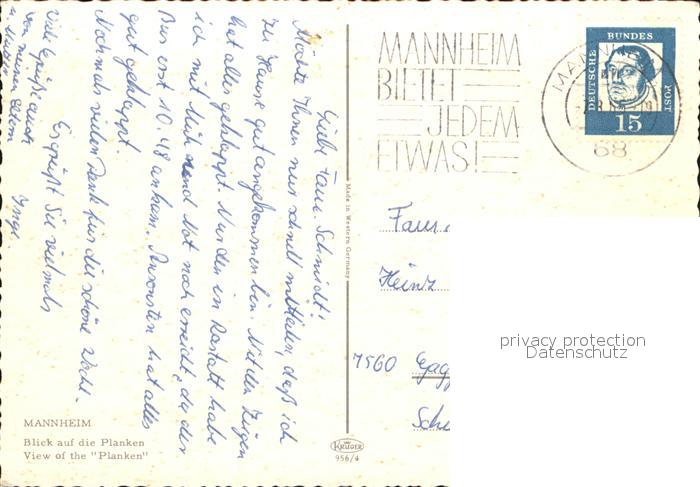 MANNHEIM
BIETET
JEDEM
ETWAS!
MANNHEIM
68
DEUTSCHE
BUNDES
POST
15
Liebe Fam. Schmidt!
Möchte Ihnen nur schnell mitteilen, daß ich
zu Hause gut angekommen bin. Mit den Zügen
hat alles geklappt. Nur den in Rastatt habe
ich mit Müh und Not noch erreicht, da der
Bus erst 10.48 ankam. Ansonsten hat alles
gut geklappt.
Nochmals vielen Dank für die schöne Woche.
Es grüßt Sie vielmals
Inge
Viele Grüße auch
von meinen Eltern
Made in Western Germany
Fam.
Heinz
7560 Gagg
Sche
privacy protection
Datenschutz
MANNHEIM
Blick auf die Planken
View of the "Planken"
KRÜGER
956/4